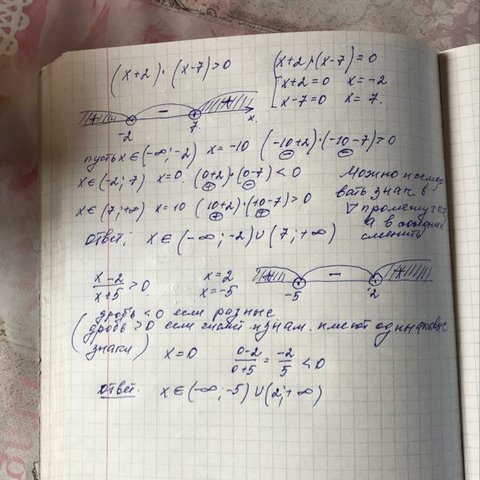 (x+2)·(x-7)>0
(x+2)·(x-7)=0
x+2=0 x=-2
x-7=0 x=7.
+ - +
-2 7 x.
пусть x∈(-∞;-2) x=-10 (-10+2)·(-10-7)>0
- -
x∈(-2;7) x=0 (0+2)·(0-7)<0
+ -
x∈(7;+∞) x=10 (10+2)·(10-7)>0
+ +
Можно
вать знак в
∇
а в
сменить
Ответ: x∈(-∞;-2)∪(7;+∞)
x-2/x+5 >0 x=2
x=-5
+ - +
-5 2
дробь <0 если разные
(дробь >0 если числ и знам. имеют одинаковые
знаки) x=0 0-2/0+5 = -2/5 <0
Ответ. x∈(-∞;-5)∪(2;+∞)